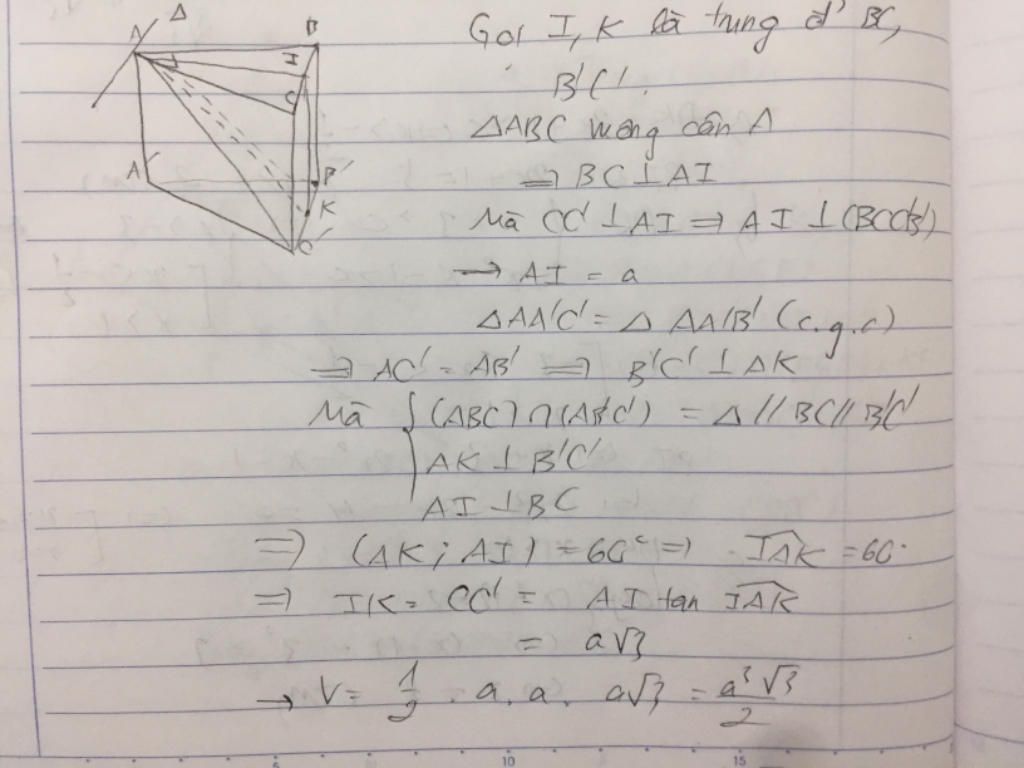 Gọi I, K là trung đ' BC,
B'C'.
ΔABC vuông cân A
⇒ BC ⊥ AI
Mà CC' ⊥ AI ⇒ AI ⊥ (BCC'B')
→ AI = a
ΔAA'C' = ΔAA'B' (c.g.c)
⇒ AC' = AB' ⇒ B'C' ⊥ AK
Mà { (ABC) ∩ (AB'C') = Δ // BC // B'C'
AK ⊥ B'C'
AI ⊥ BC
⇒ (AK; AI) = 60° ⇒ IAK = 60°
⇒ IK = CC' = AI tan IAK
= a√3
→ V = 1/2 . a . a . a√3 = a³√3/2
A Δ B
I
C
A' B'
K
C'
5 10 15